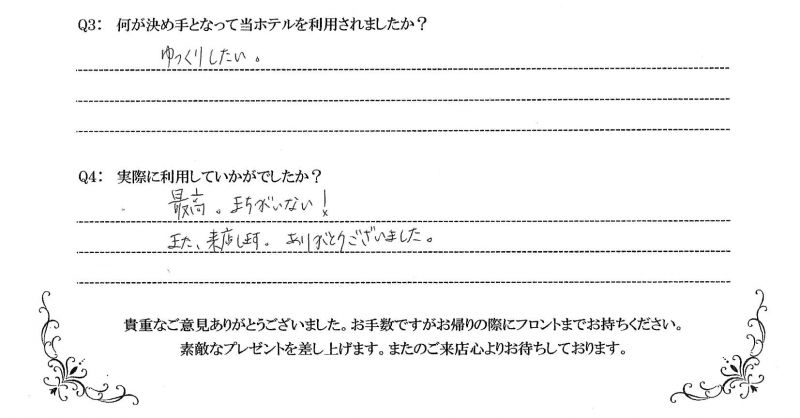 Q3: 何が決め手となって当ホテルを利用されましたか？
ゆっくりしたい。
Q4: 実際に利用していかがでしたか？
最高。まちがいない！
また、来店します。ありがとうございました。
貴重なご意見ありがとうございました。お手数ですがお帰りの際にフロントまでお持ちください。
素敵なプレゼントを差し上げます。またのご来店心よりお待ちしております。